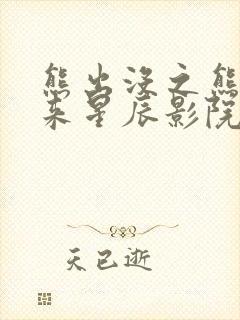 熊出没之熊
来星辰影院
天已逝